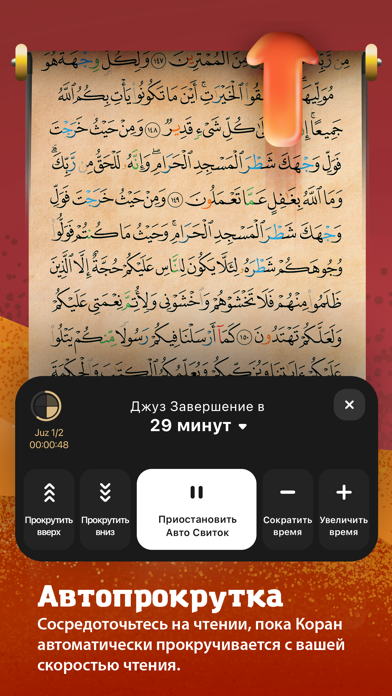 مِن رَّبِّ مِنَ الْمُمْتَرِينَ ١٤٧ وَلِكُلٍّ وِجْهَةٌ هُوَ
مُوَلِّيهَا قُوا الْخَيْرَٰتِ ۚ أَيْنَ مَا تَكُونُوا يَأْتِ بِكُمُ اللَّهُ
جَمِيعًا ۚ إِ لَىٰ كُلِّ شَيْءٍ قَدِيرٌ ١٤٨ وَمِنْ حَيْثُ خَرَجْتَ
فَوَلِّ وَجْهَكَ شَطْرَ الْمَسْجِدِ الْحَرَامِ ۖ وَإِنَّهُ لَلْحَقُّ مِن رَّبِّكَ ۗ
وَمَا اللَّهُ بِغَٰفِلٍ عَمَّا تَعْمَلُونَ ١٤٩ وَمِنْ حَيْثُ خَرَجْتَ فَوَلِّ
وَجْهَكَ شَطْرَ الْمَسْجِدِ الْحَرَامِ ۚ وَحَيْثُ مَا كُنتُمْ فَوَلُّوا
وُجُوهَكُمْ شَطْرَهُ لِئَلَّا يَكُونَ لِلنَّاسِ عَلَيْكُمْ حُجَّةٌ إِلَّا الَّذِينَ
ظَلَمُوا مِنْهُمْ فَلَا تَخْشَوْهُمْ وَاخْشَوْنِي وَلِأُتِمَّ نِعْمَتِي عَلَيْكُمْ
وَلَعَلَّكُمْ تَهْتَدُونَ ١٥٠ كَمَا أَرْسَلْنَا فِيكُمْ رَسُولًا مِّنكُمْ يَتْلُوا
عَلَيْكُمْ آيَٰتِنَا وَيُزَكِّيكُمْ وَيُعَلِّمُكُمُ الْكِتَٰبَ وَالْحِكْمَةَ
Джуз Завершение в
29 минут
Juz 1/2
00:00:48
Прокрутить вверх
Прокрутить вниз
Приостановить Авто Свиток
Сократить время
Увеличить время
Автопрокрутка
Сосредоточьтесь на чтении, пока Коран
автоматически прокручивается с вашей
скоростью чтения.